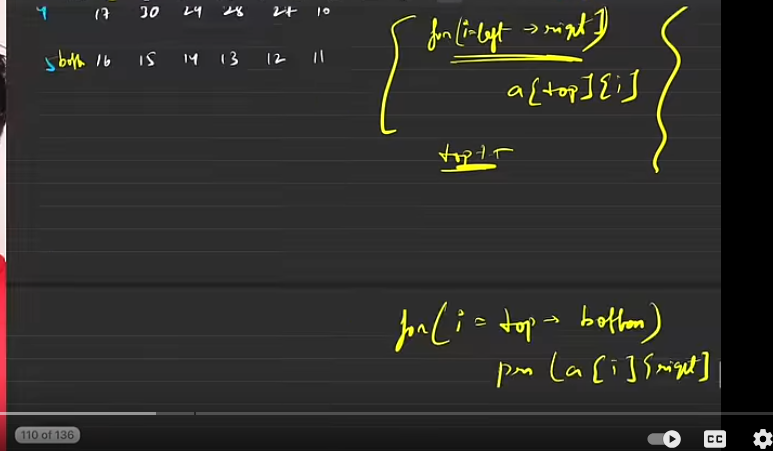 4 17 30 29 28 27 10
5 bottom 16 15 14 13 12 11
for(i=left → right)
a[top][i]
top++
for(i = top → bottom)
print (a[i][right]
110 of 136
CC